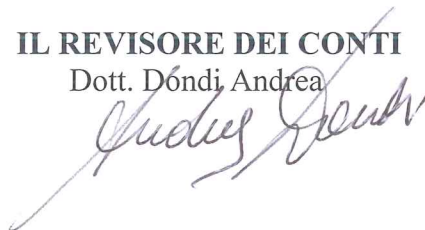 IL REVISORE DEI CONTI
Dott. Dondi Andrea
Andrea Dondi